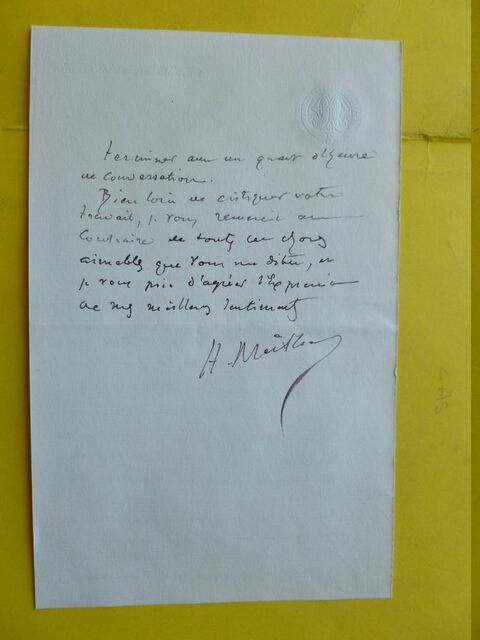 terminer avec un quart d'heure
de conversation.
Bien loin de critiquer votre
travail, je vous remercie au
contraire de toutes les choses
aimables que vous me dites, et
je vous prie d'agréer l'Expression
de mes meilleurs sentiments
LAS